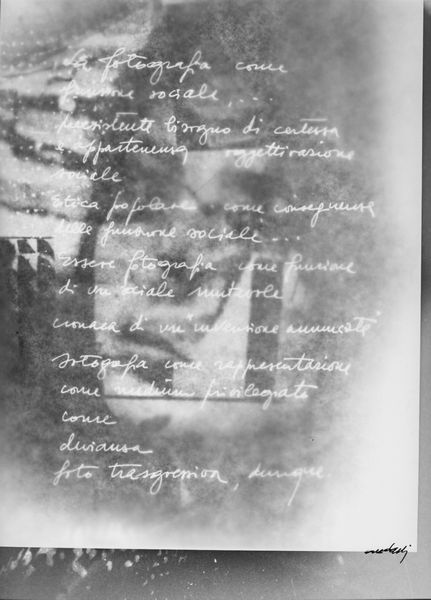 La fotografia come
funzione sociale, ...
persistente bisogno di certezza
e appartenenza oggettivazione
sociale
Etica popolare come conseguenza
delle funzione sociale...
Essere fotografia come funzione
di un sociale mutevole
cronaca di un "invenzione annunciata"
fotografia come rappresentazione
come medium privilegiato
come
devianza
foto trasgressiva, dunque